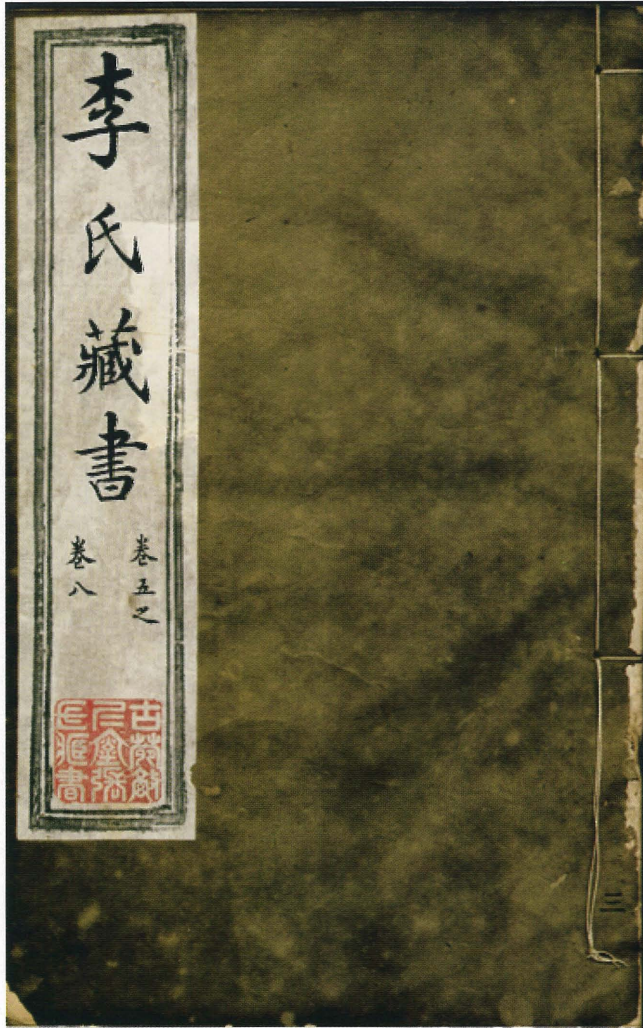 李氏藏書
卷五之
卷八
三